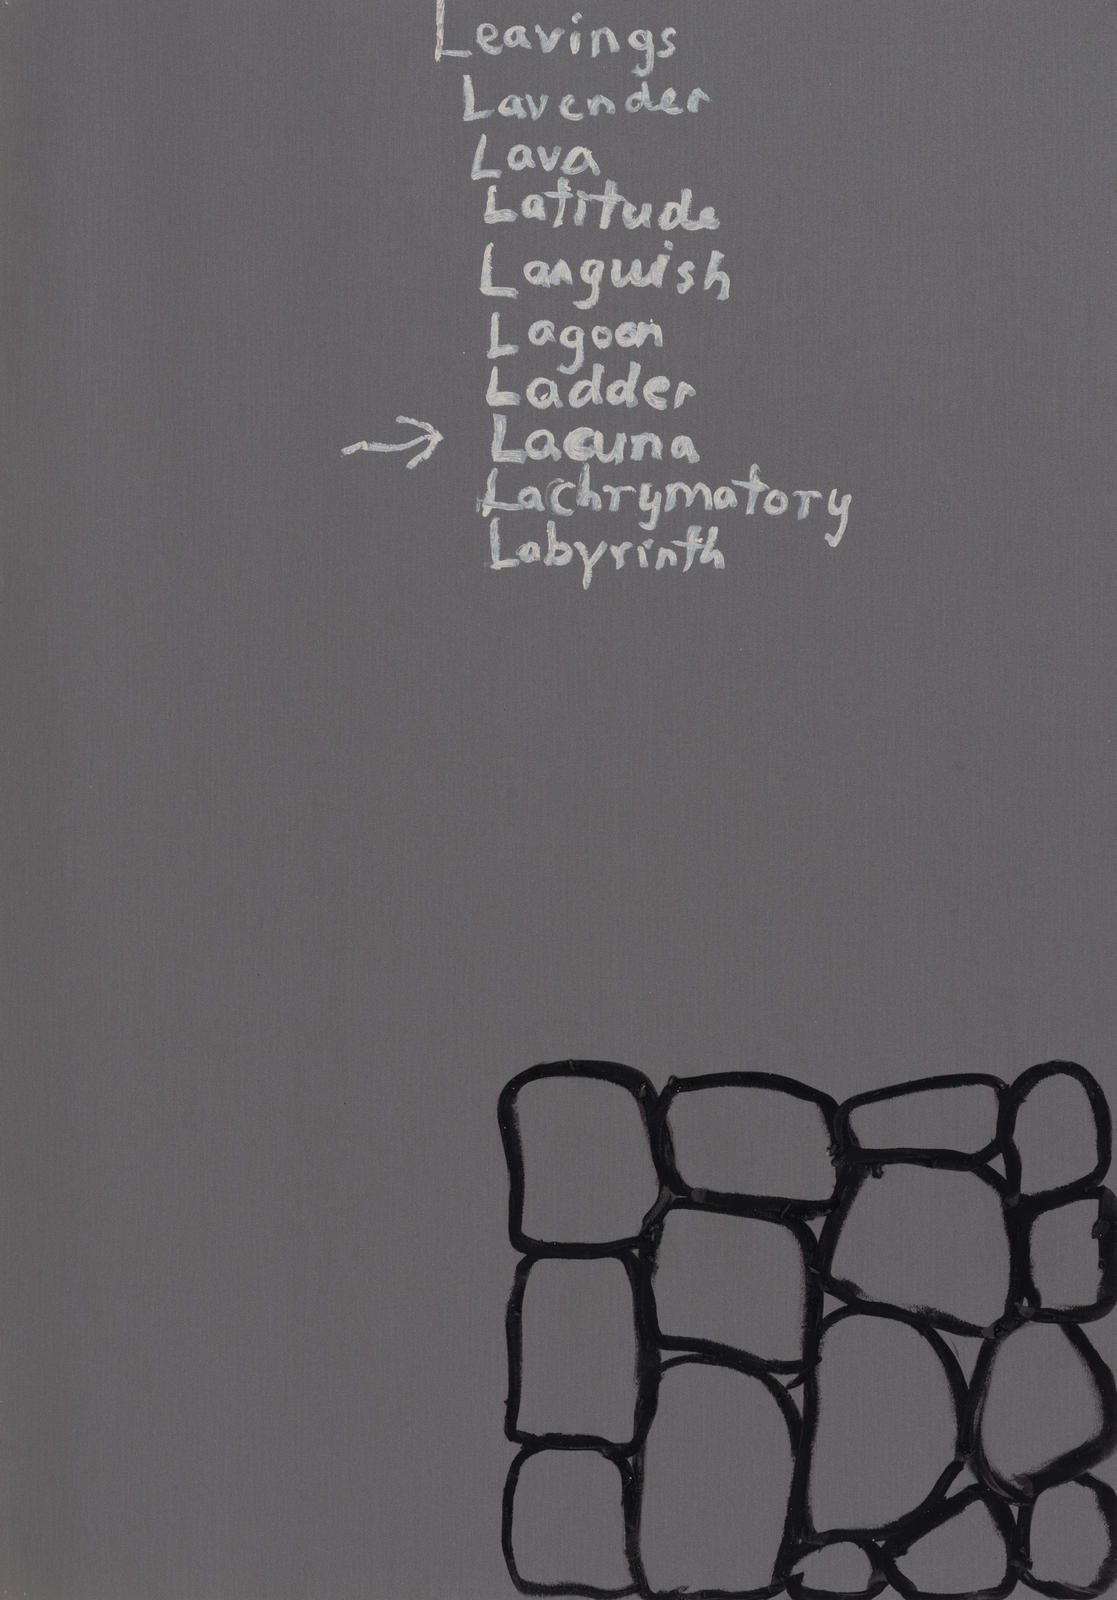 Leavings
Lavender
Lava
Latitude
Languish
Lagoon
Ladder
→ Lacuna
Lachrymatory
Labyrinth